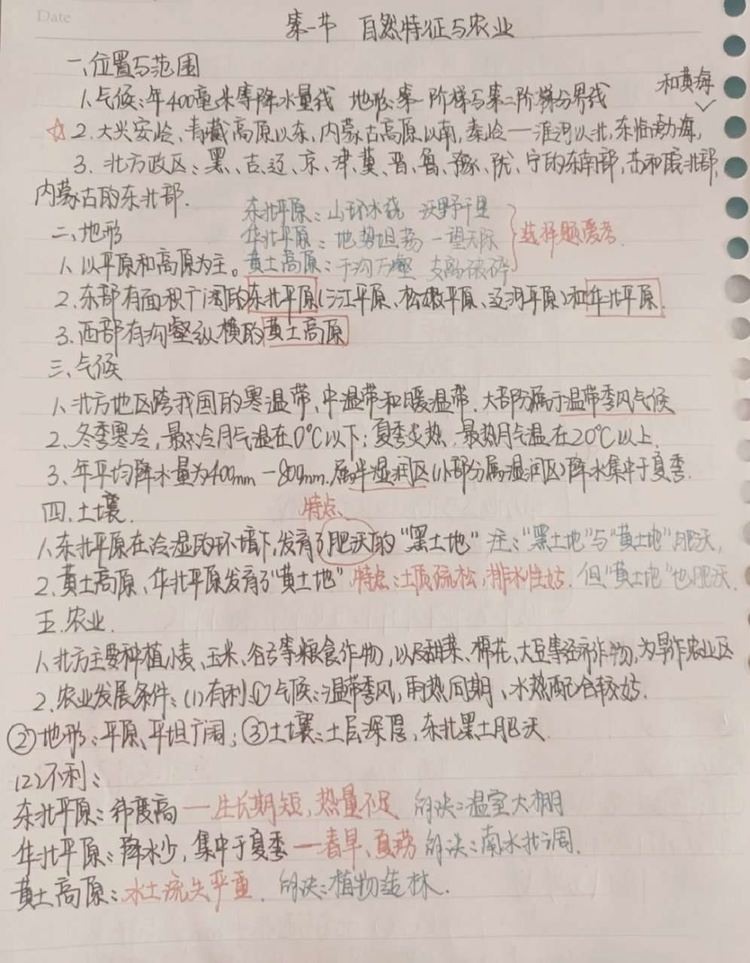 Date
第一节 自然特征与农业
一、位置与范围
1、气候:年400毫米等降水量线 地形:第一阶梯与第二阶梯分界线
和黄海
☆2、大兴安岭、青藏高原以东,内蒙古高原以南,秦岭—淮河以北,东临渤海,
3、北方政区:黑、吉、辽、京、津、冀、晋、鲁、豫、陕、宁的东南部,苏和皖北部,
内蒙古的东北部.
东北平原:山环水绕 沃野千里
二、地形
华北平原:地势坦荡 一望无际
选择题爱考.
1、以平原和高原为主。
黄土高原:千沟万壑 支离破碎
2、东部有面积广阔的东北平原(三江平原、松嫩平原、辽河平原)和华北平原.
3、西部有沟壑纵横的黄土高原
三、气候
1、北方地区跨我国的寒温带、中温带和暖温带.大部分属于温带季风气候
2、冬季寒冷,最冷月气温在0℃以下;夏季炎热.最热月气温在20℃以上.
3、年平均降水量为400mm-800mm.属半湿润区(小部分属湿润区)降水集中于夏季.
四、土壤.
特点、
1、东北平原在冷湿的环境下,发育了肥沃的“黑土地” 注:“黑土地”与“黄土地”肥沃,
2、黄土高原、华北平原发育了“黄土地” 特点:土质疏松,排水性好.但“黄土地”也肥沃.
五、农业.
1、北方主要种植小麦、玉米、谷子等粮食作物,以及甜菜、棉花、大豆等经济作物,为旱作农业区
2、农业发展条件:(1)有利:①气候:温带季风,雨热同期、水热配合较好.
②地形:平原、平坦广阔;③土壤:土层深厚,东北黑土肥沃.
(2)不利:
东北平原:纬度高—生长期短,热量不足 解决:温室大棚
华北平原:降水少,集中于夏季—春旱、夏涝 解决:南水北调.
黄土高原:水土流失严重. 解决:植物造林.